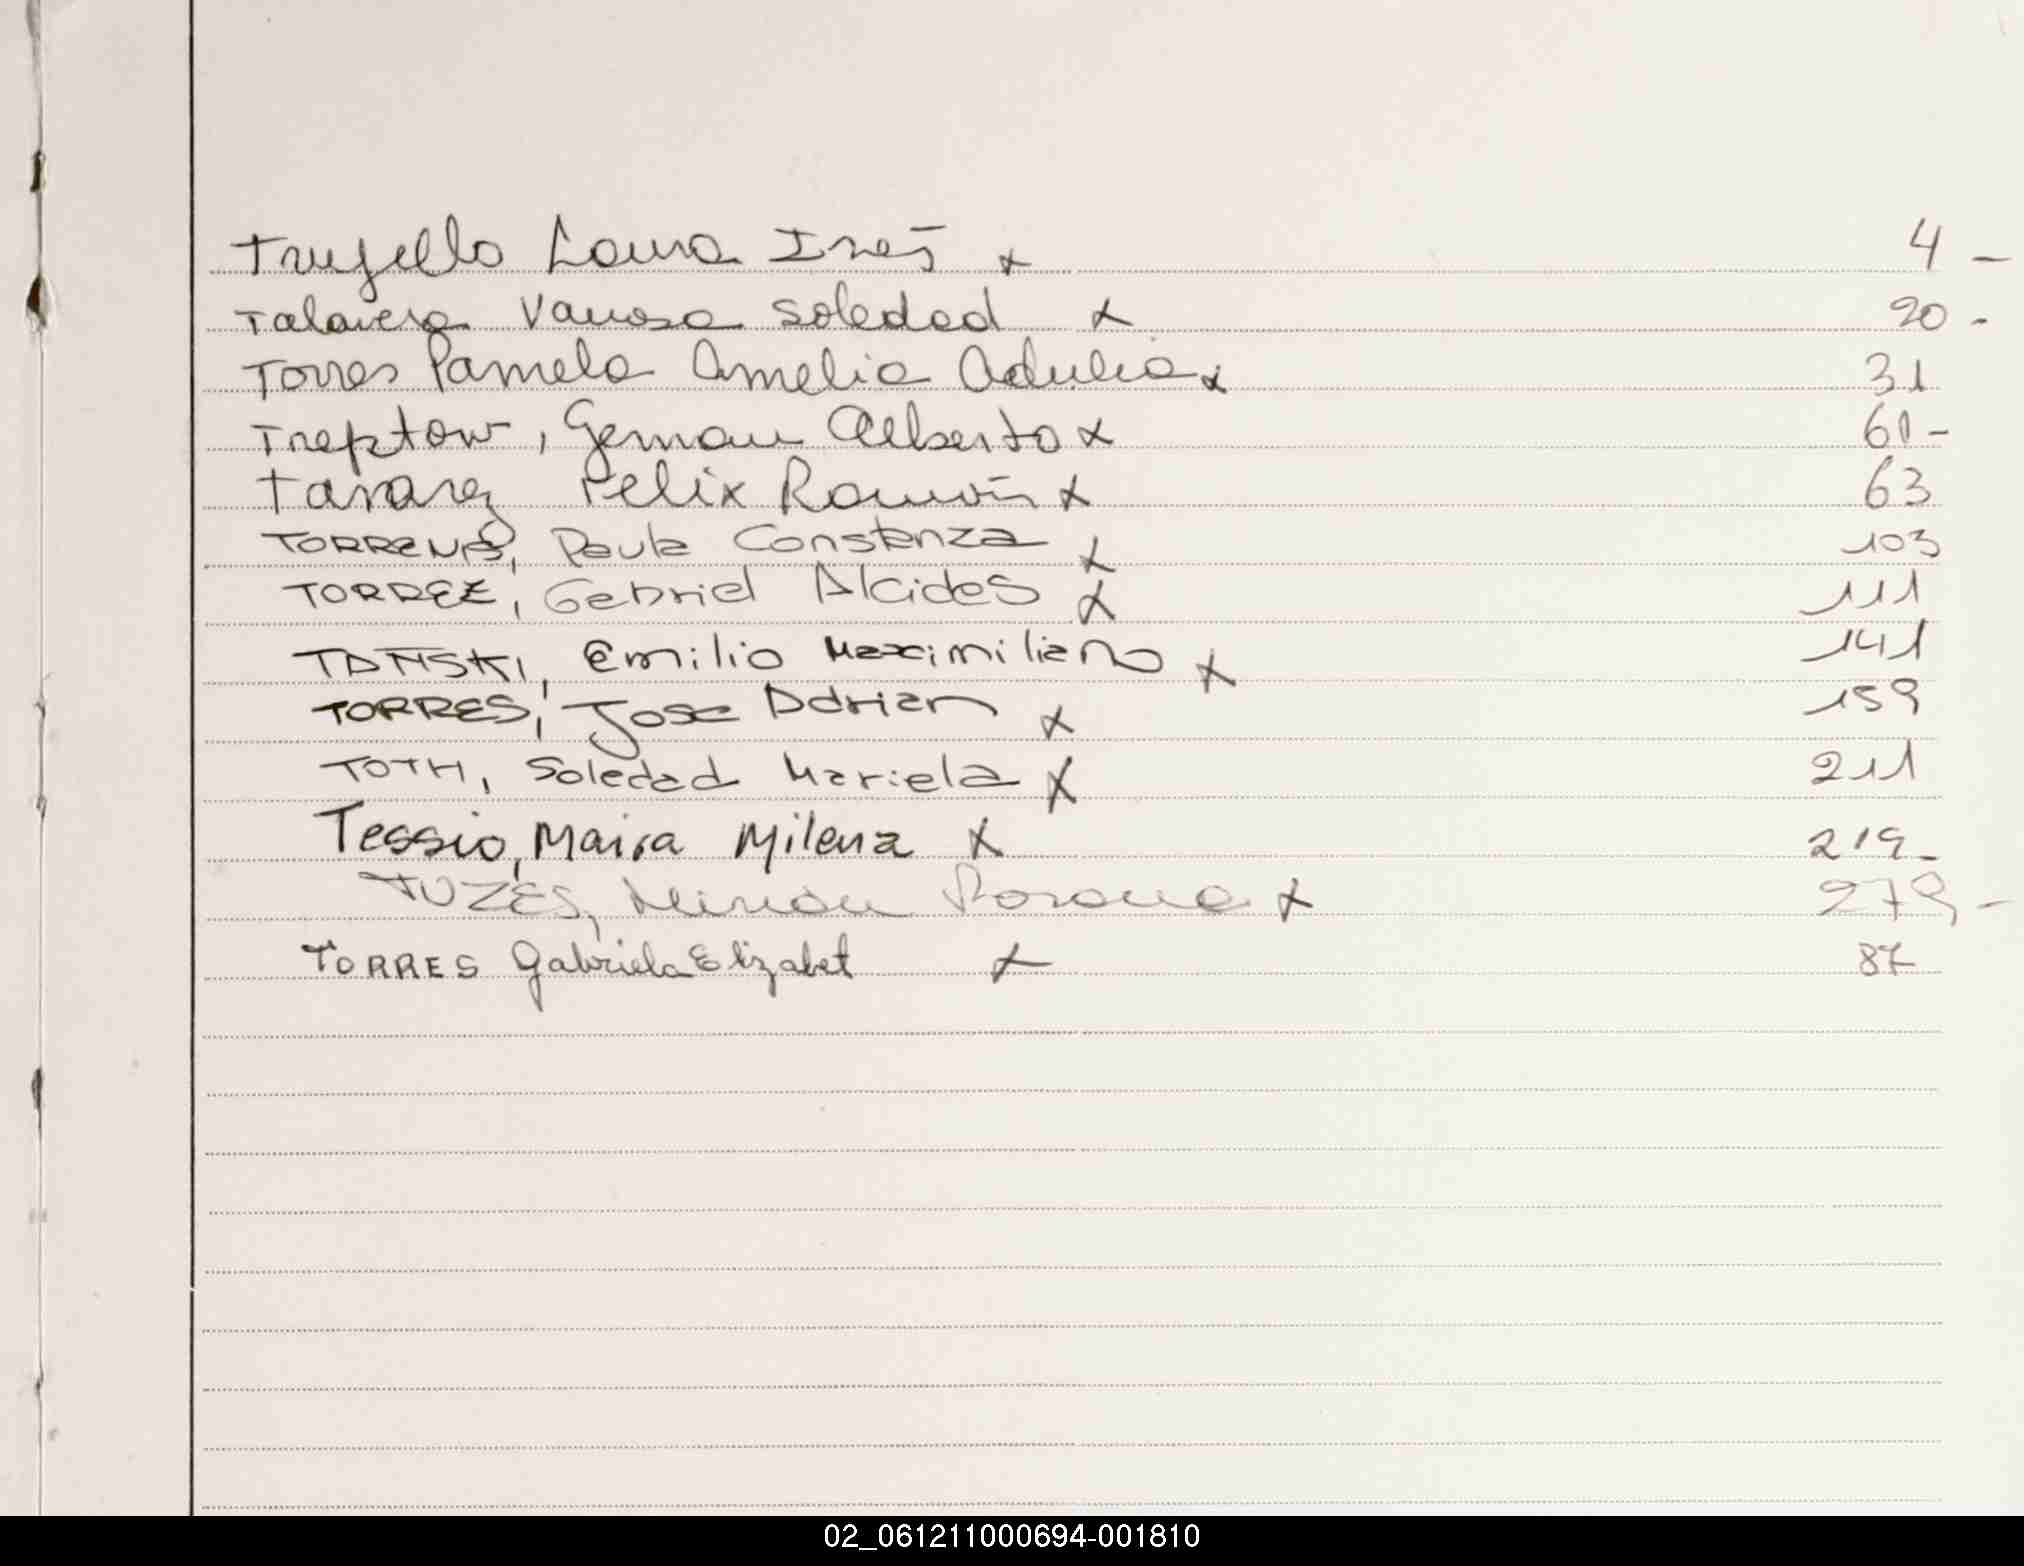 Trujillo Laura Inés x 4 -
Talavera Vanesa Soledad x 20 -
Torres Pamela Amelia Odulia x 31
Treptow, German Alberto x 61 -
Tanarez Felix Ramón x 63
TORRENS, Paula Constanza x 103
TORREZ, Gabriel Alcides x 111
Emilio Maximiliano x 141
TORRES, Jose Adrian x 159
TOTH, Soledad Mariela x 211
Tessio, Maira Milena x 219 -
TUZES, Mirian Rosana x 279 -
TORRES Gabriela Elizabet x 87
02_061211000694-001810